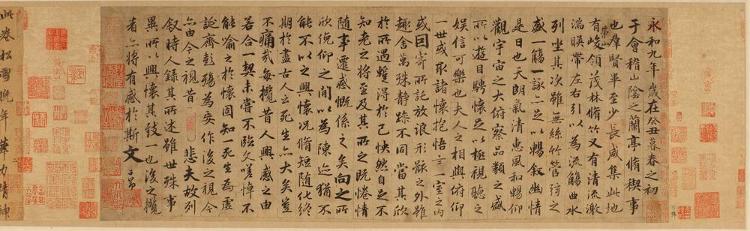 永和九年歲在癸丑暮春之初
于會稽山陰之蘭亭脩稧事
也群賢畢至少長咸集此地
有崇山峻領茂林脩竹又有清流激
湍暎帶左右引以為流觴曲水
列坐其次雖無絲竹管弦之
盛一觴一詠亦足以暢敘幽情
是日也天朗氣清惠風和暢仰
觀宇宙之大俯察品類之盛
所以遊目騁懷足以極視聽之
娛信可樂也夫人之相與俯仰
一世或取諸懷抱悟言一室之內
或因寄所託放浪形骸之外雖
趣舍萬殊靜躁不同當其欣
於所遇暫得於己怏然自足不
知老之將至及其所之既惓情
隨事遷感慨係之矣向之所
欣俛仰之間以為陳迹猶不
能不以之興懷況脩短隨化終
期於盡古人云死生亦大矣豈
不痛哉每攬昔人興感之由
若合一契未嘗不臨文嗟悼不
能喻之於懷固知一死生為虛
誕齊彭殤為妄作後之視今
亦由今之視昔 悲夫故列
敘時人錄其所述雖世殊事
異所以興懷其致一也後之攬
者亦將有感於斯文 子昂
此卷松雪晚年筆力精神